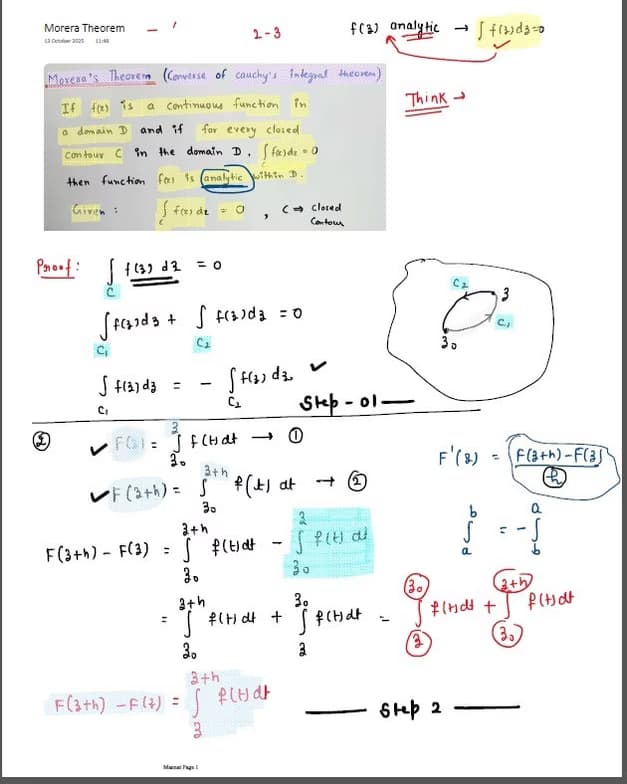 Morera Theorem
13 October 2025 11:48
2-3
f(z) analytic → ∫ f(z)dz=0
Morera's Theorem (Converse of cauchy's integral theorem)
Think →
If f(z) is a continuous function in
a domain D and if for every closed
contour C in the domain D, ∫ f(z)dz = 0
C
then function f(z) is analytic within D.
Given : ∫ f(z) dz = 0 , C ⇒ closed
C
Contour
Proof : ∫ f(z) dz = 0
C
C₂
z
C₁
z₀
∫ f(z)dz + ∫ f(z)dz = 0
C₁ C₂
∫ f(z)dz = - ∫ f(z) dz ✓
C₁ C₂
Step - 01 —
② ✓ F(z) = ∫_{z₀}^{z} f(t)dt → ①
F'(z) = F(z+h) - F(z)
h
✓ F(z+h) = ∫_{z₀}^{z+h} f(t) dt → ②
∫_a^b = - ∫_b^a
F(z+h) - F(z) = ∫_{z₀}^{z+h} f(t)dt - ∫_{z₀}^{z} f(t) dt
= ∫_{z₀}^{z+h} f(t) dt + ∫_{z}^{z₀} f(t)dt = ∫_{z}^{z₀} f(t)dt + ∫_{z₀}^{z+h} f(t)dt
F(z+h) - F(z) = ∫_{z}^{z+h} f(t) dt
— Step 2 —
Page 1